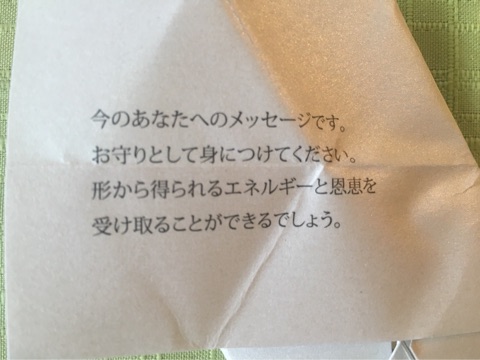 今のあなたへのメッセージです。
お守りとして身につけてください。
形から得られるエネルギーと恩恵を
受け取ることができるでしょう。